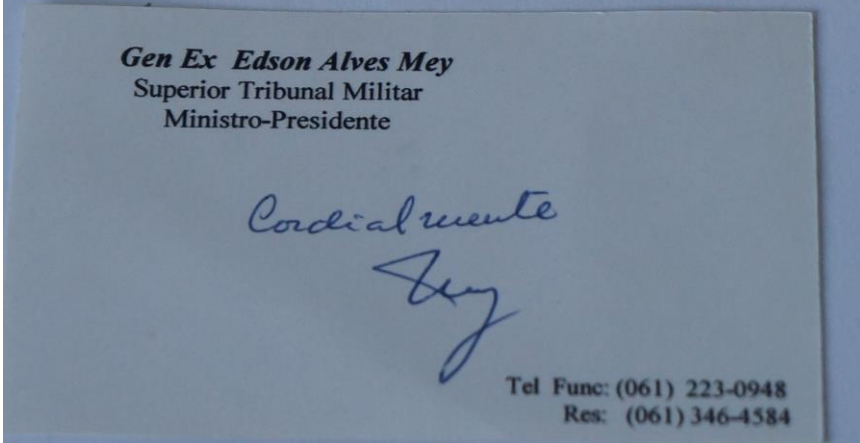 Gen Ex Edson Alves Mey
Superior Tribunal Militar
Ministro-Presidente
Cordialmente
Mey
Tel Func: (061) 223-0948
Res: (061) 346-4584